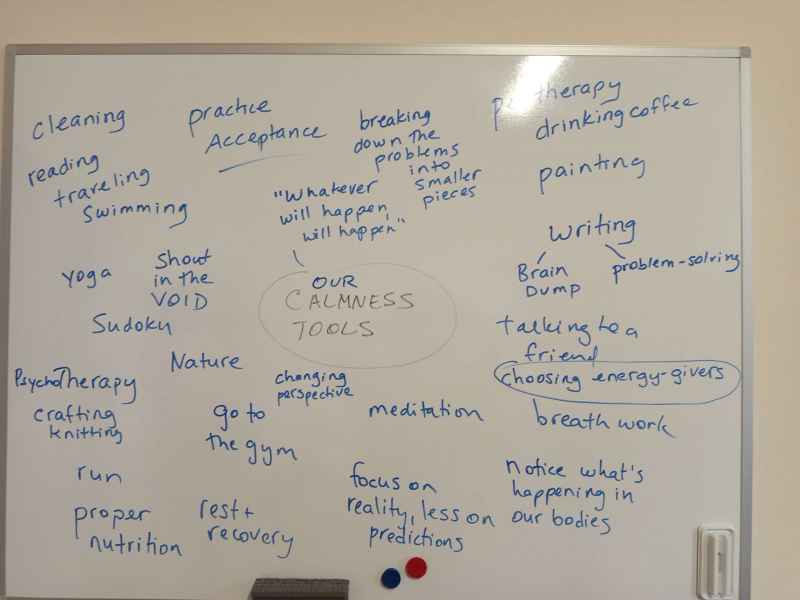 cleaning
practice
Acceptance
breaking
down the
problems
into
smaller
pieces
therapy
drinking coffee
reading
traveling
swimming
"Whatever
will happen,
will happen"
painting
writing
Brain
Dump
problem-solving
yoga
Shout
in the
VOID
OUR
CALMNESS
TOOLS
Sudoku
talking to a
friend
Nature
choosing energy-givers
PsychoTherapy
changing
perspective
crafting
knitting
go to
the gym
meditation
breath work
run
focus on
reality, less on
predictions
notice what's
happening in
our bodies
proper
nutrition
rest +
recovery